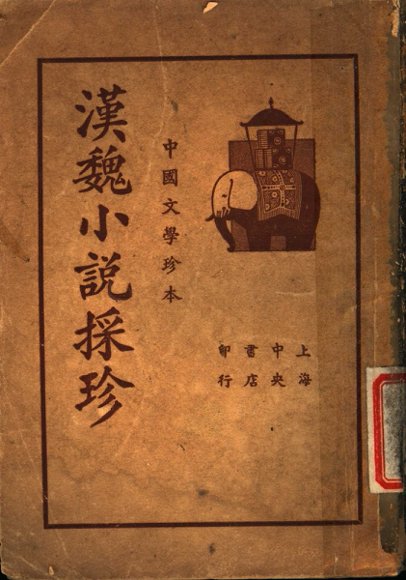 漢魏小說採珍
中國文學珍本
上海
中央
書店
印行